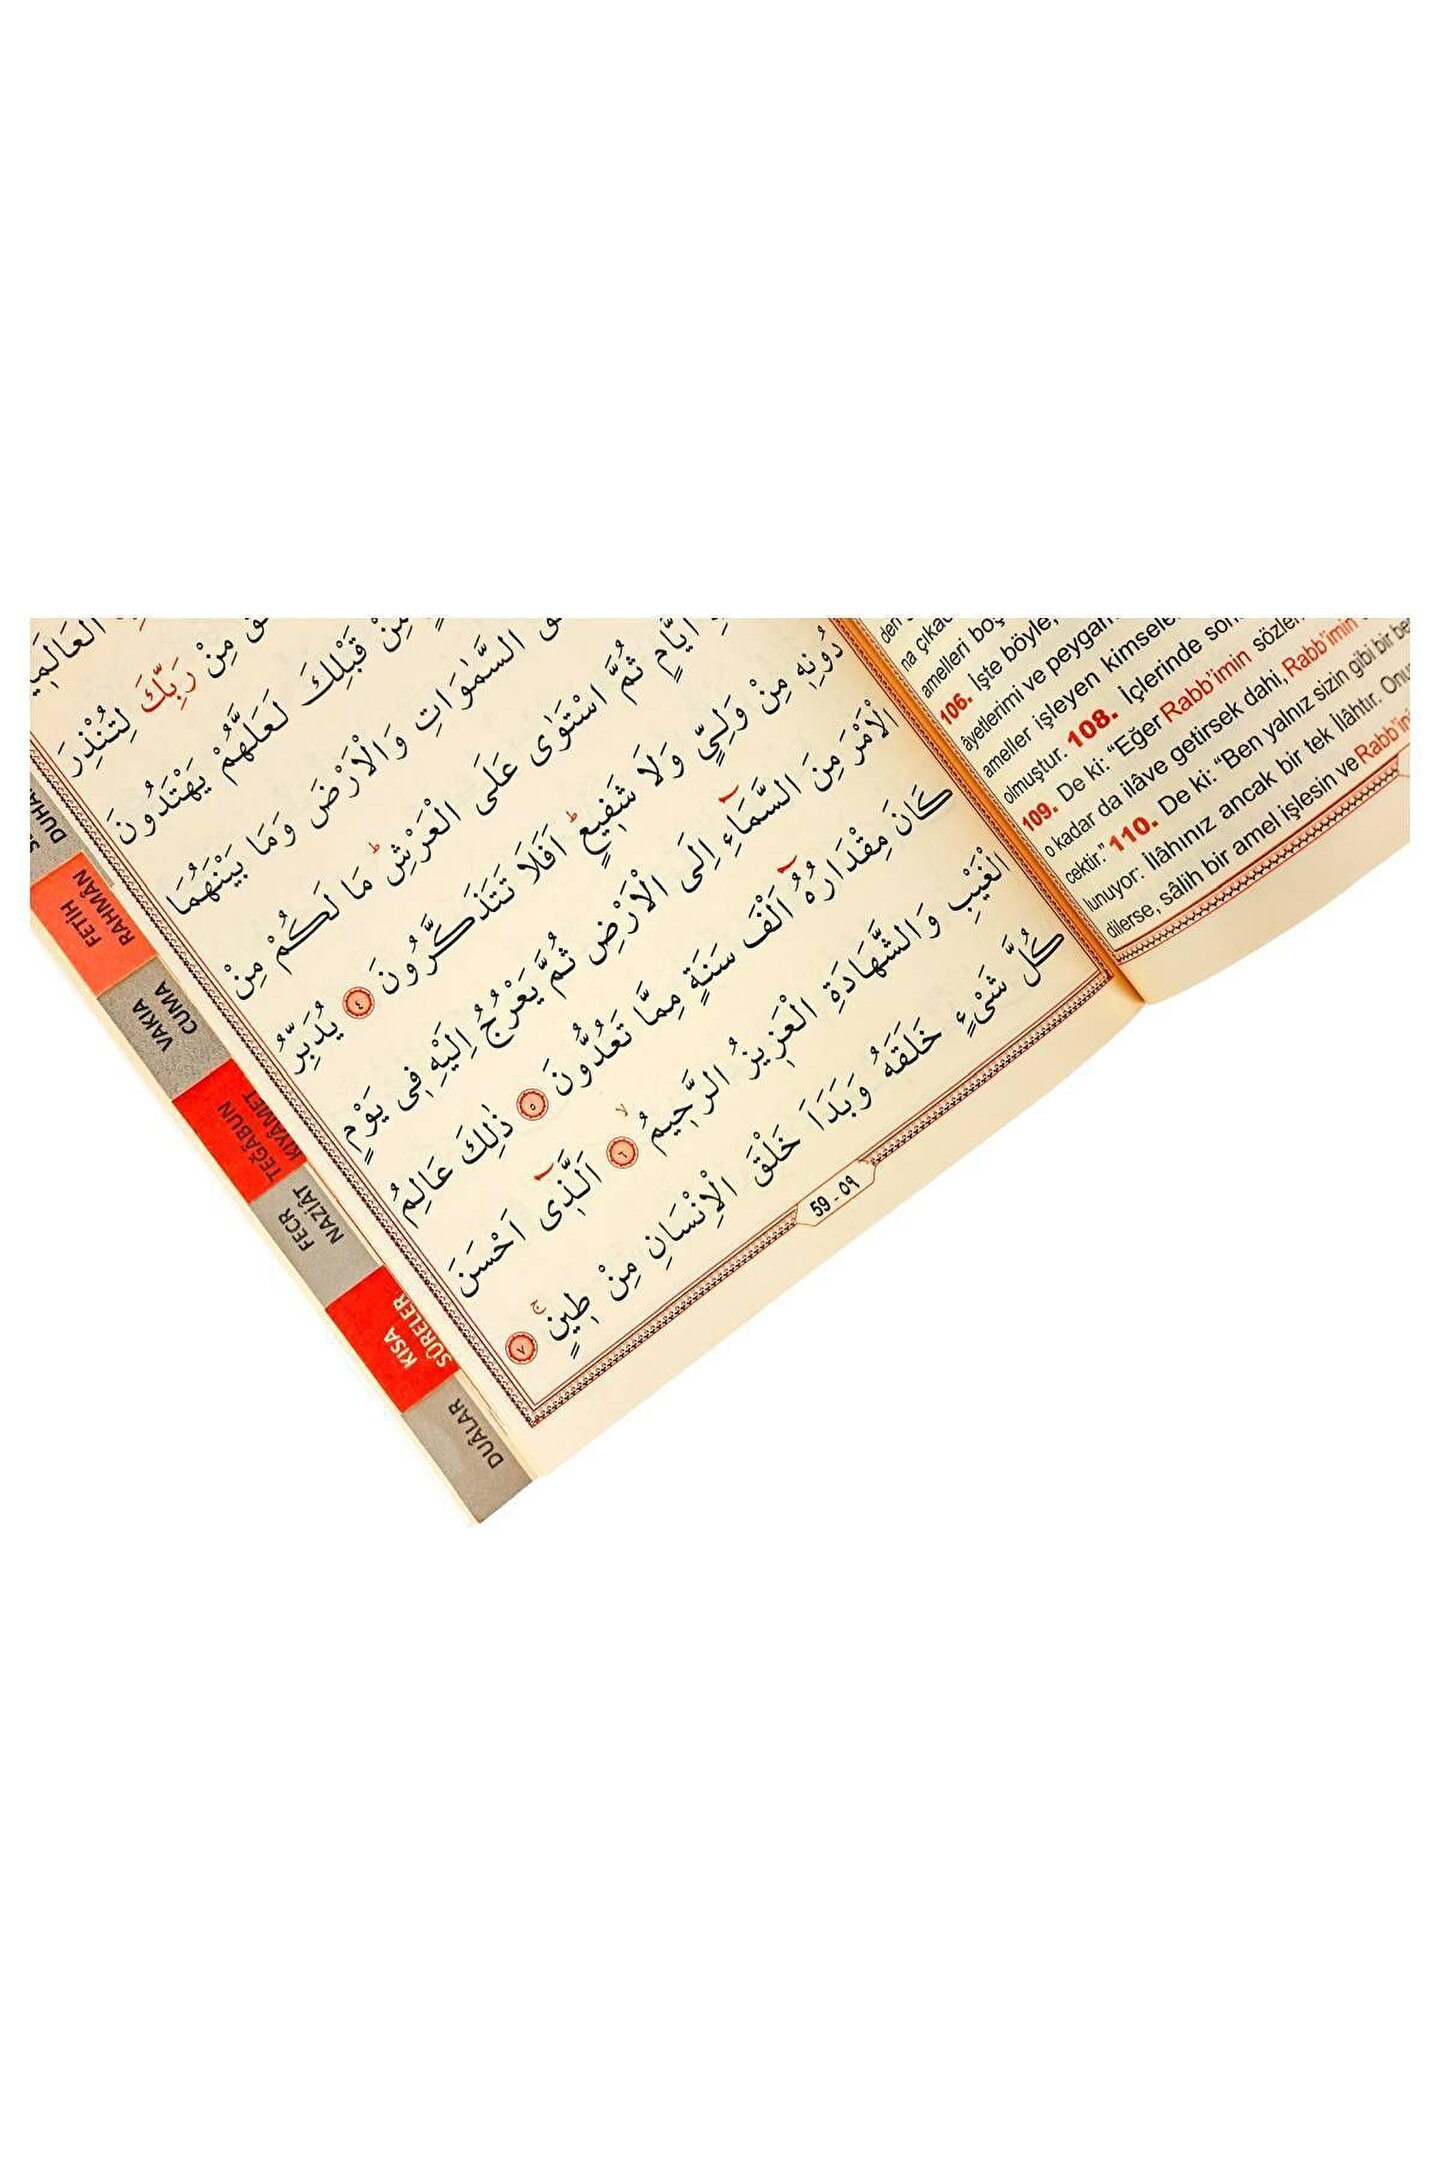 لِتُنْذِرَ
مِنْ رَبِّكَ
مِنْ قَبْلِكَ لَعَلَّهُمْ يَهْتَدُونَ
السَّمٰوَاتِ وَالْاَرْضَ وَمَا بَيْنَهُمَا
اَيَّامٍ ثُمَّ اسْتَوٰى عَلَى الْعَرْشِۜ مَا لَكُمْ مِنْ
دُونِه۪ مِنْ وَلِيٍّ وَلَا شَف۪يعٍۜ اَفَلَا تَتَذَكَّرُونَ ﴿٤﴾ يُدَبِّرُ
الْاَمْرَ مِنَ السَّمَٓاءِ اِلَى الْاَرْضِ ثُمَّ يَعْرُجُ اِلَيْهِ ف۪ي يَوْمٍ
كَانَ مِقْدَارُهُٓ اَلْفَ سَنَةٍ مِمَّا تَعُدُّونَ ﴿٥﴾ ذٰلِكَ عَالِمُ
الْغَيْبِ وَالشَّهَادَةِ الْعَز۪يزُ الرَّح۪يمُۙ ﴿٦﴾ اَلَّذ۪ٓي اَحْسَنَ
كُلَّ شَيْءٍ خَلَقَهُ وَبَدَاَ خَلْقَ الْاِنْسَانِ مِنْ ط۪ينٍۚ ﴿٧﴾
59 - ٥٩
na
amelleri
106. İşte böyle,
âyetlerimi ve
ameller işleyen
olmuştur. 108. İçlerinde
109. De ki: “Eğer Rabb’imin
o kadar da ilâve getirsek dahi, Rabb’imin
cektir.” 110. De ki: “Ben yalnız sizin gibi bir
lunuyor: İlâhınız ancak bir tek İlâhtır.
dilerse, sâlih bir amel işlesin ve
DUHAN
FETİH
RAHMÂN
VAKIA
CUMA
TEĞÂBUN
KIYÂMET
FECR
NAZİÂT
KISA
SÛRELER
DUÂLAR